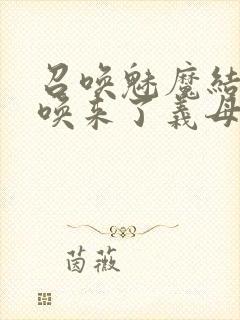 召唤魅魔結
唤来了義母
茵薇